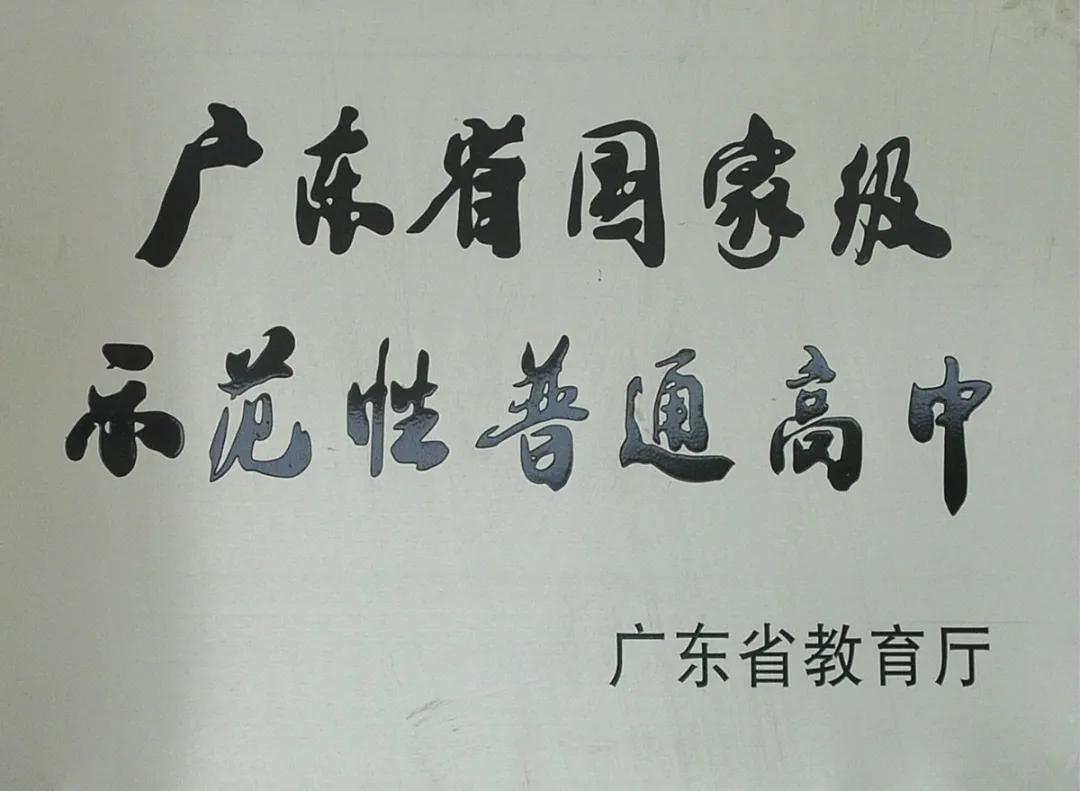 广东省国家级
示范性普通高中
广东省教育厅